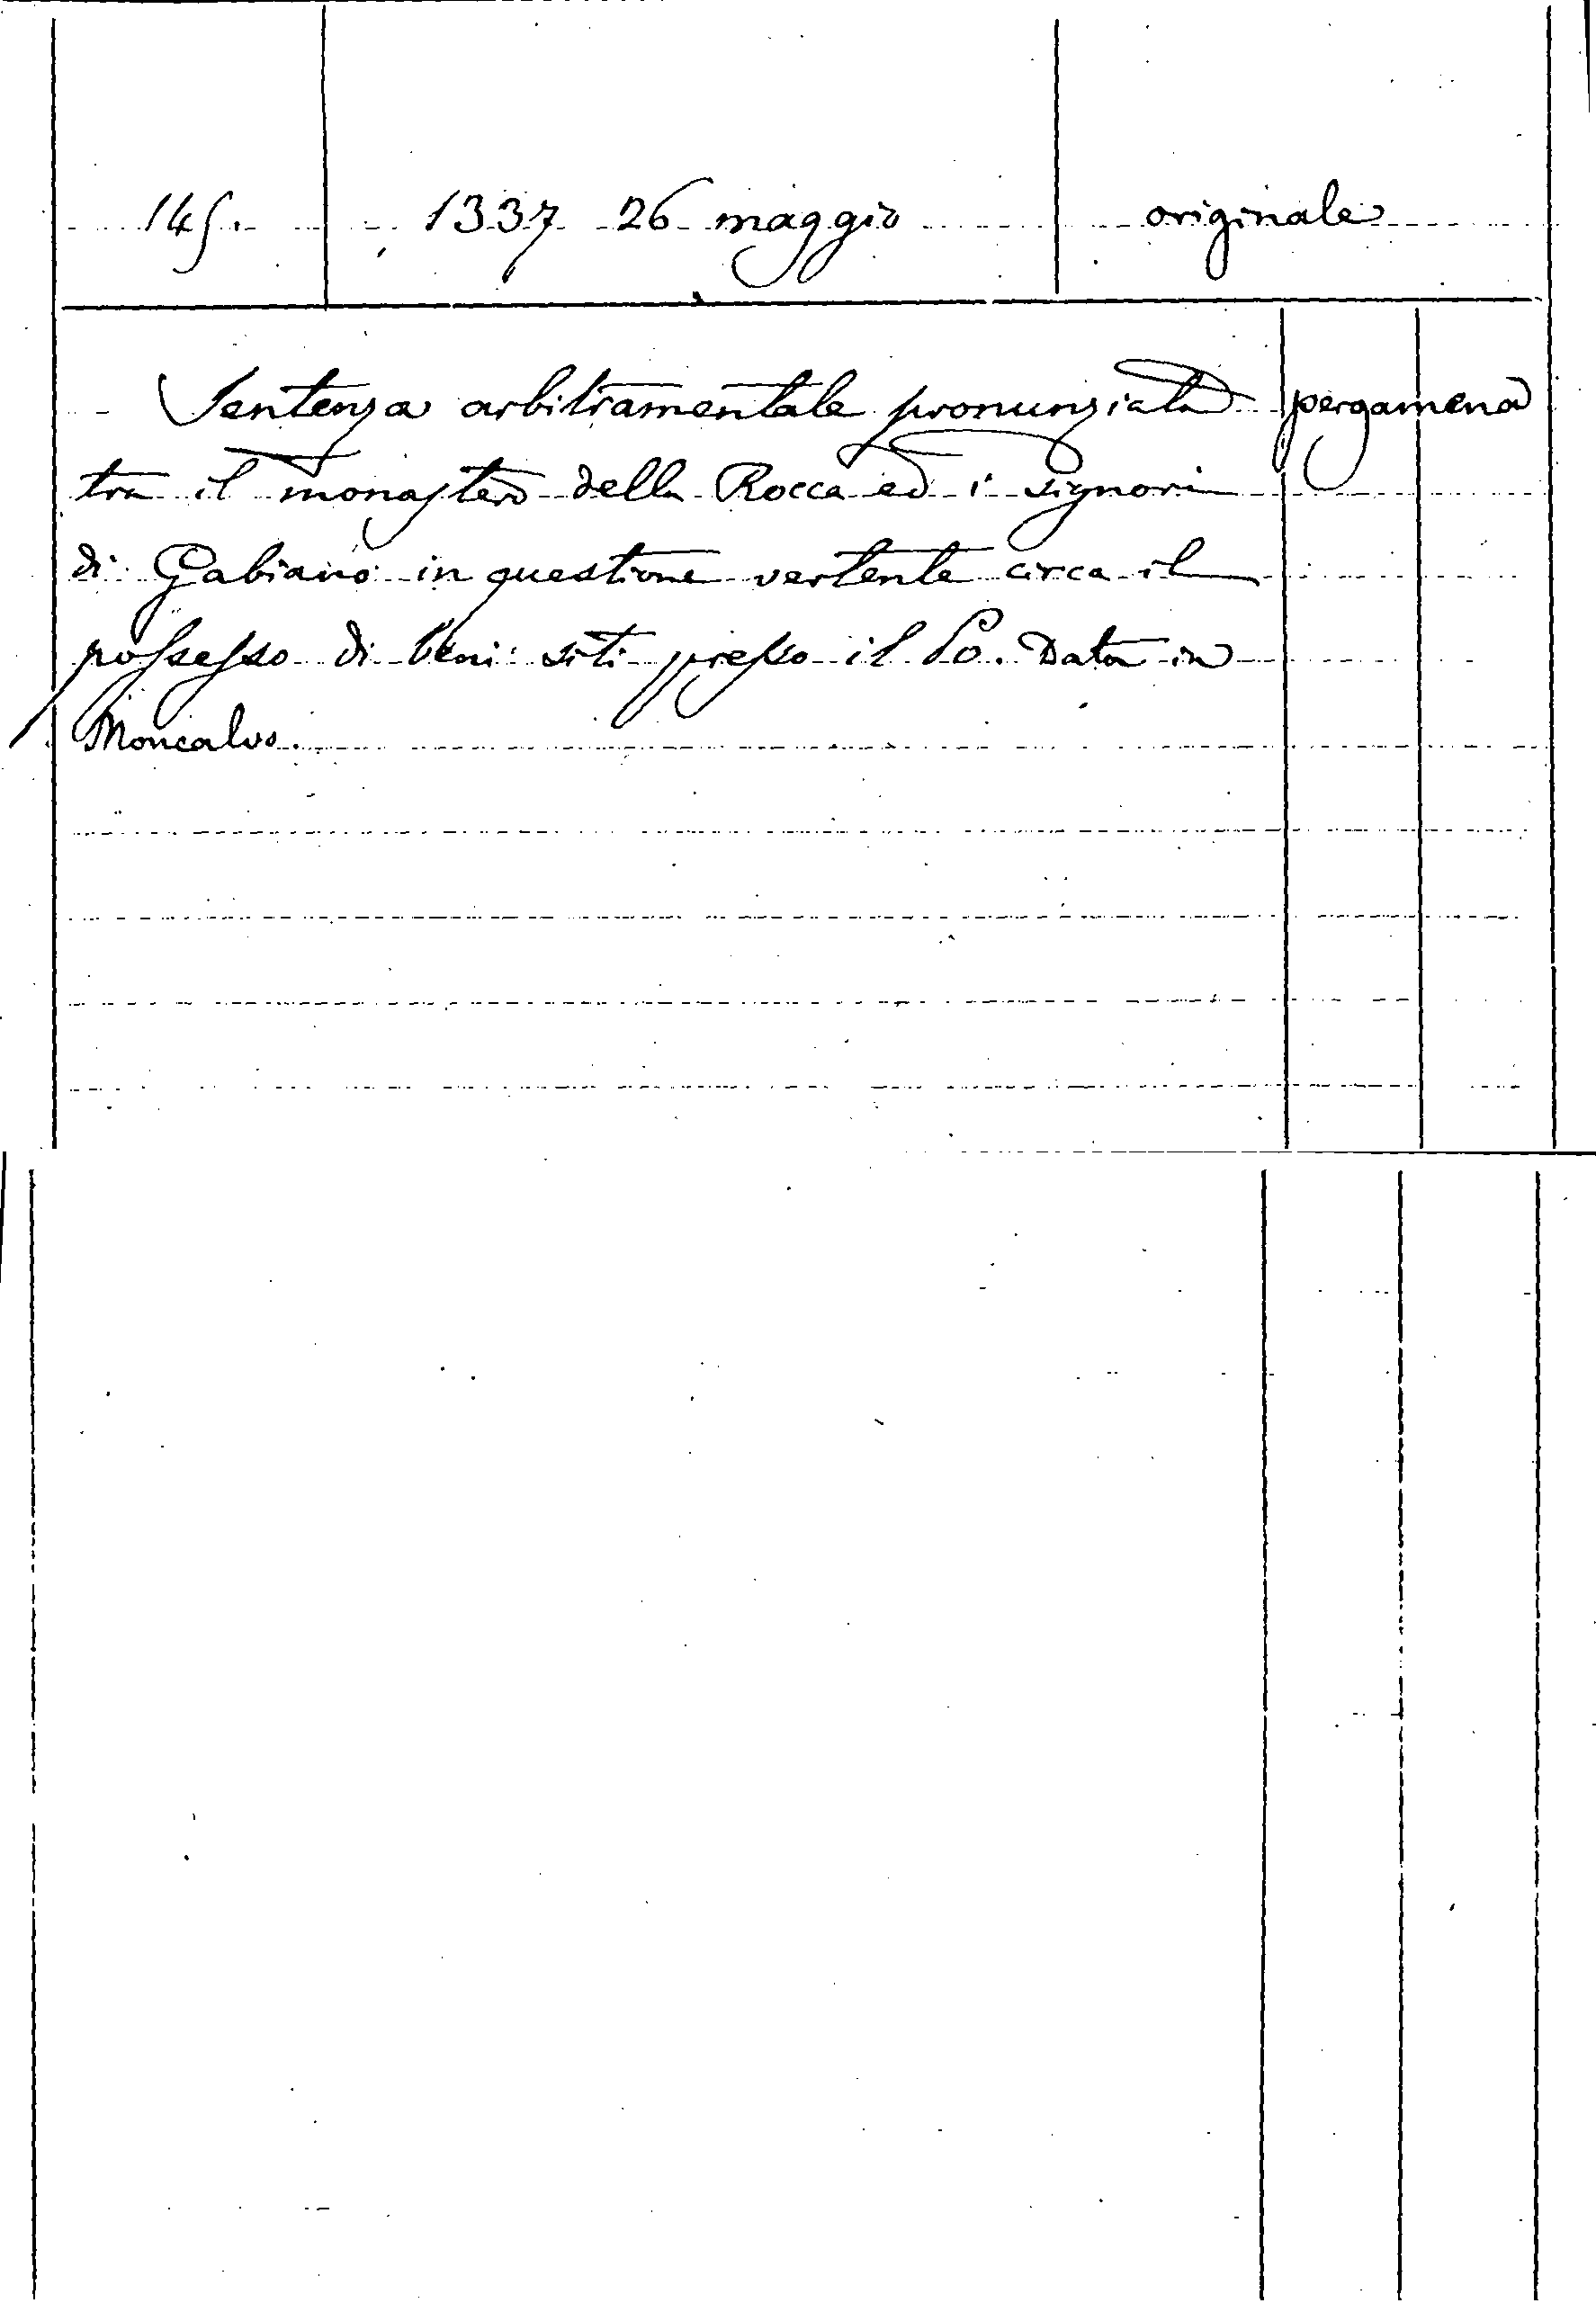 145. 1337 26 maggio originale
Sentenza arbitramentale pronunziata pergamena
tra il monastero della Rocca ed i signori
di Gabiano in questione vertente circa il
possesso di beni siti presso il Po. Data in
Moncalvo.